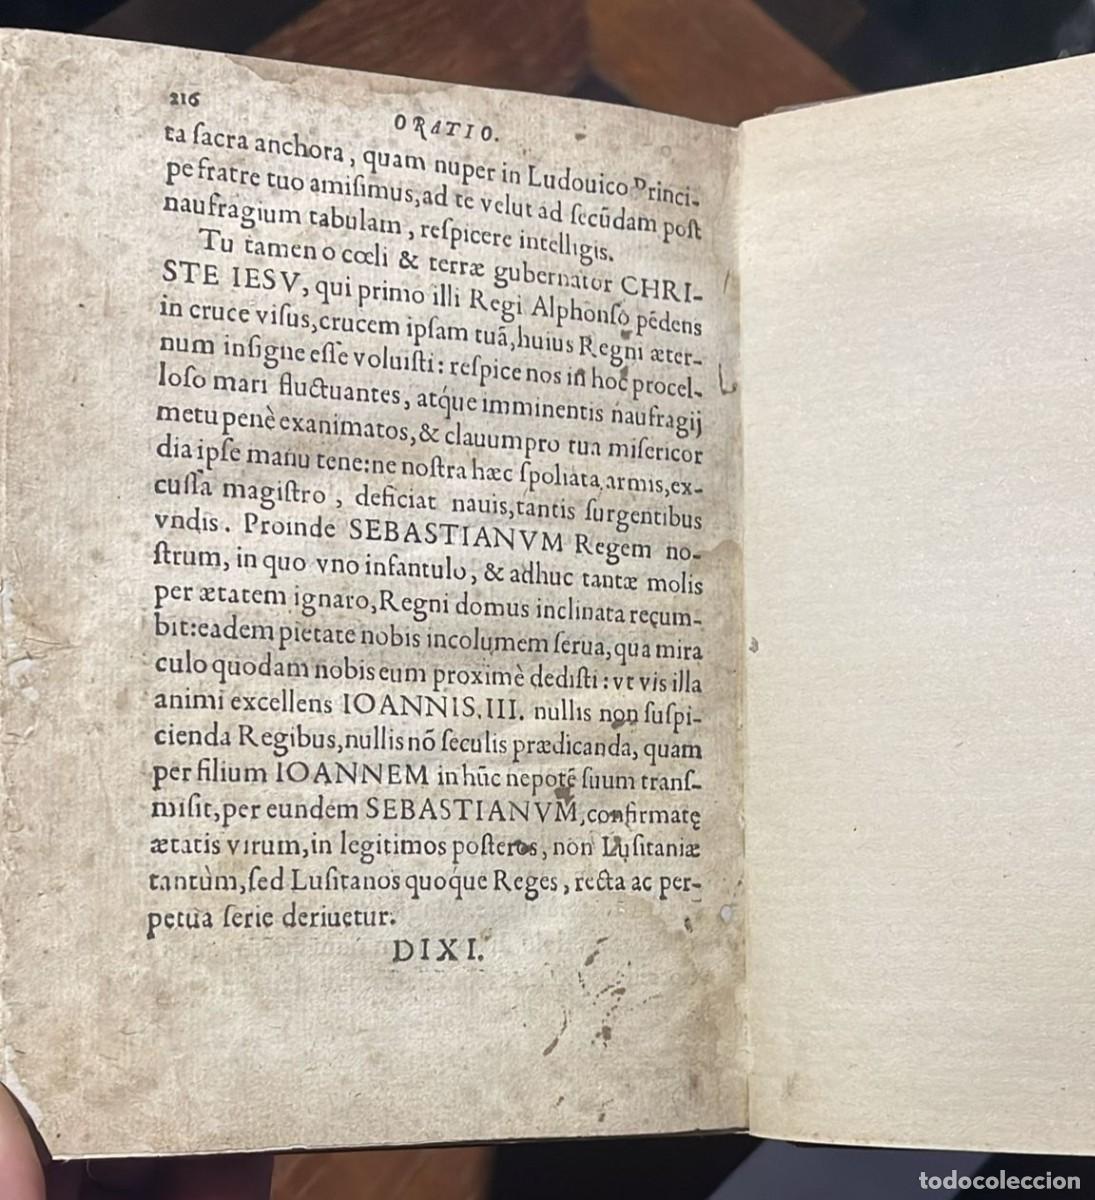 216
ORATIO.
ta ſacra anchora, quam nuper in Ludouico Princi-
pe fratre tuo amiſimus, ad te velut ad ſecũdam poſt
naufragium tabulam, reſpicere intelligis.
Tu tamen o cœli & terræ gubernator CHRI-
STE IESV, qui primo illi Regi Alphonſo pẽdens
in cruce viſus, crucem ipſam tuã, huius Regni æter-
num inſigne eſſe voluiſti: reſpice nos in hoc procel-
loſo mari fluctuantes, atq́ue imminentis naufragij
metu penè exanimatos, & clauum pro tua miſericor
dia ipſe manu tene: ne noſtra hæc ſpoliata armis, ex-
cuſſa magiſtro, deficiat nauis, tantis ſurgentibus
vndis. Proinde SEBASTIANVM Regem no-
ſtrum, in quo vno infantulo, & adhuc tantæ molis
per ætatem ignaro, Regni domus inclinata recum-
bit: eadem pietate nobis incolumem ſerua, qua mira
culo quodam nobis eum proximè dediſti: vt vis illa
animi excellens IOANNIS. III. nullis non ſuſpi-
cienda Regibus, nullis nõ ſeculis prædicanda, quam
per filium IOANNEM in hũc nepotẽ ſuum tranſ-
miſit, per eundem SEBASTIANVM, confirmatę
ætatis virum, in legitimos poſteros, non Luſitaniæ
tantùm, ſed Luſitanos quoq́ue Reges, recta ac per-
petua ſerie deriuetur.
DIXI.
todocoleccion